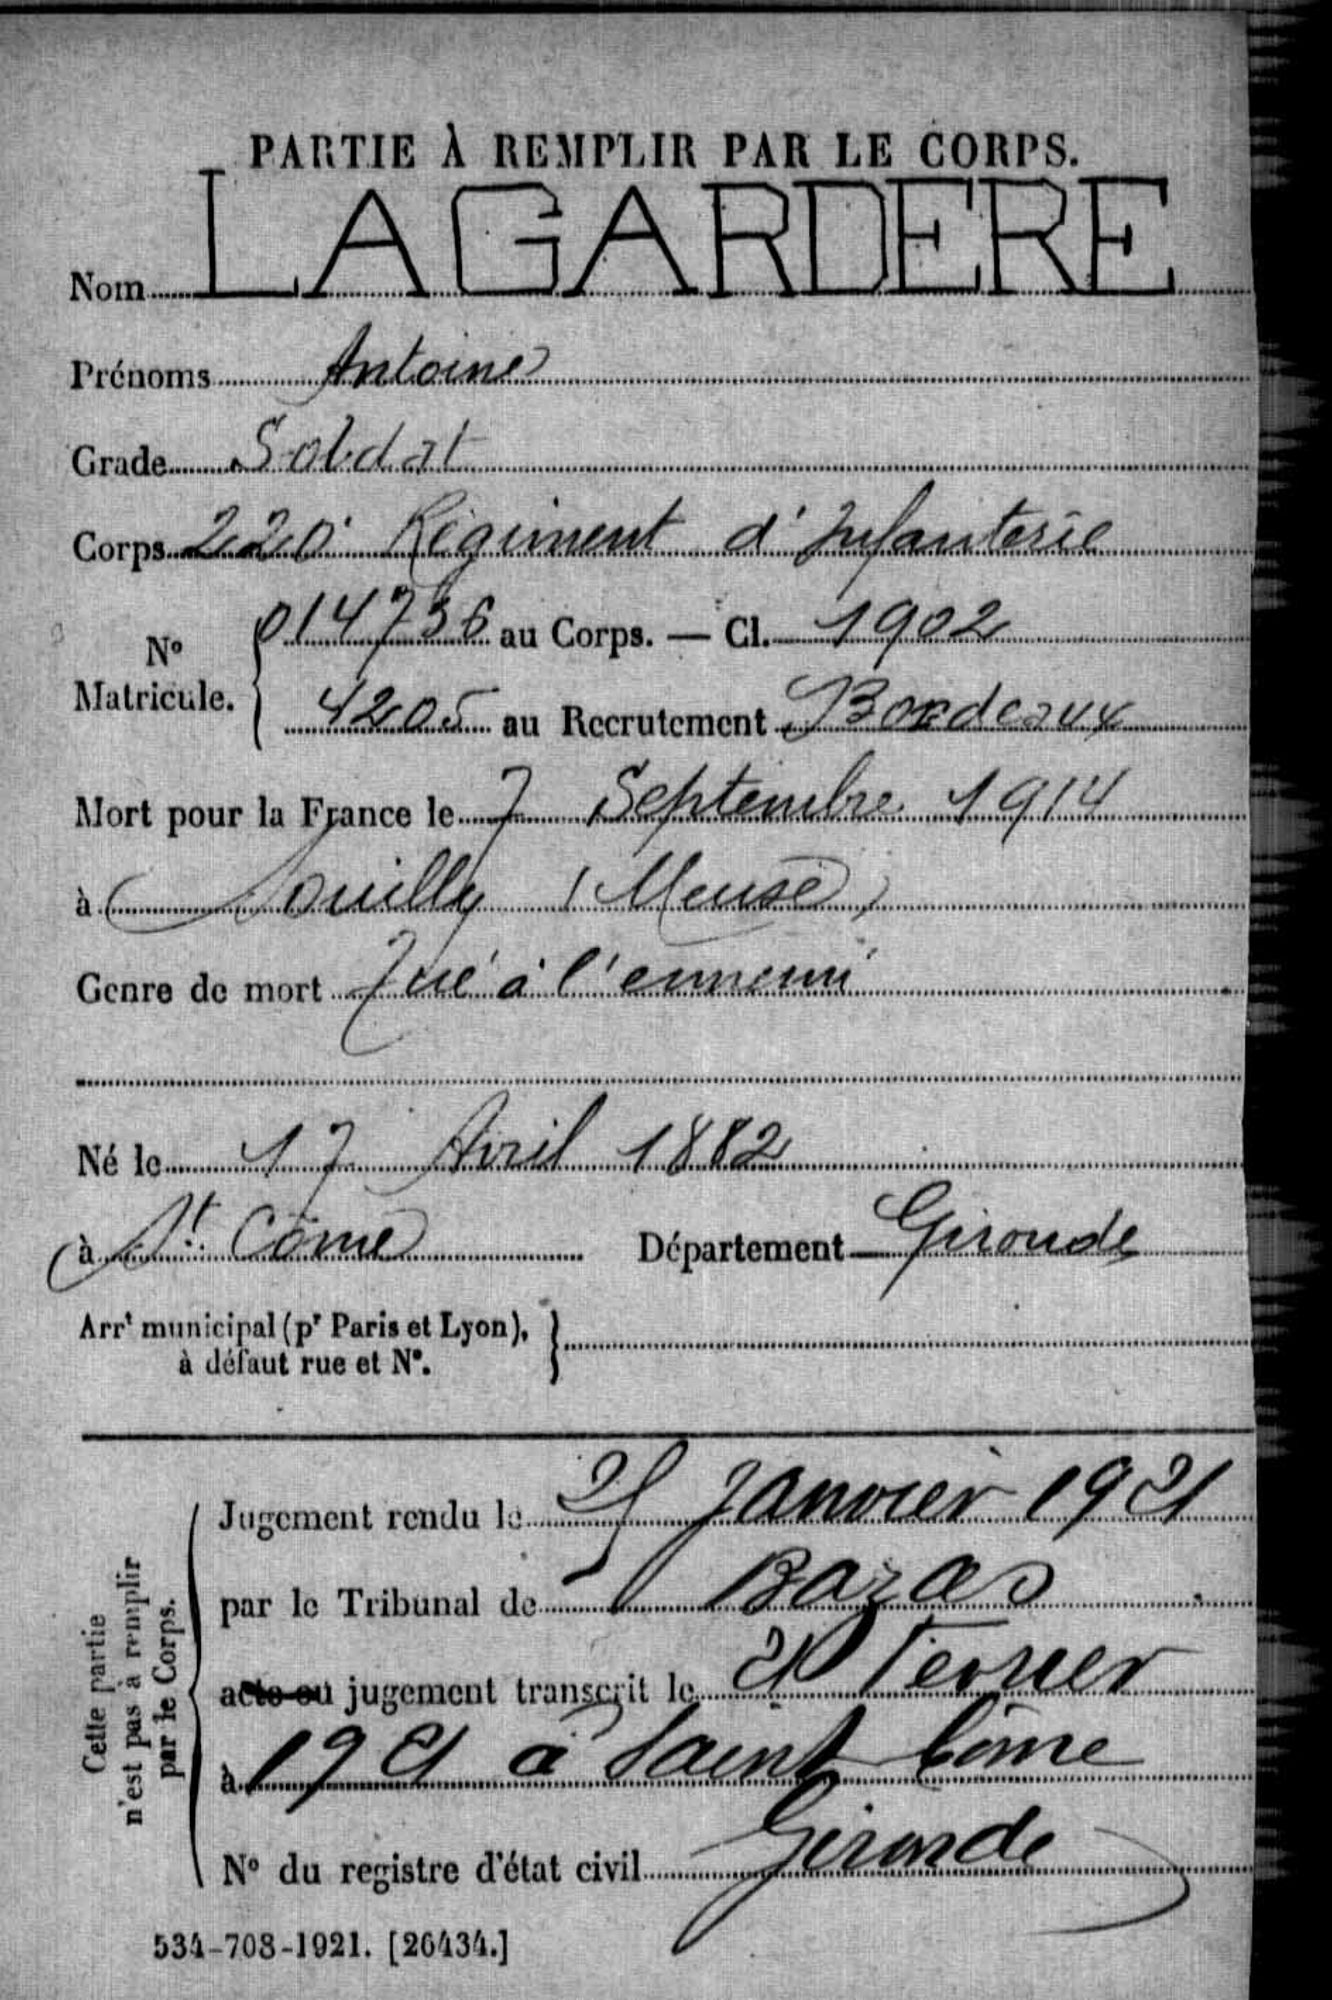 PARTIE À REMPLIR PAR LE CORPS.
Nom LAGARDERE
Prénoms Antoine
Grade Soldat
Corps 220e Régiment d'Infanterie
No Matricule. 014736 au Corps. — Cl. 1902
4205 au Recrutement Bordeaux
Mort pour la France le 7 Septembre 1914
à Souilly (Meuse)
Genre de mort Tué à l'ennemi
Né le 17 Avril 1882
à St. Côme Département Gironde
Arrt municipal (pr Paris et Lyon), à défaut rue et No.
Cette partie n'est pas à remplir par le Corps.
Jugement rendu le Janvier 1921
par le Tribunal de Bazas
acte ou jugement transcrit le Fevrier
à 1921 à Saint Côme
Gironde
No du registre d'état civil
534-708-1921. [26434.]